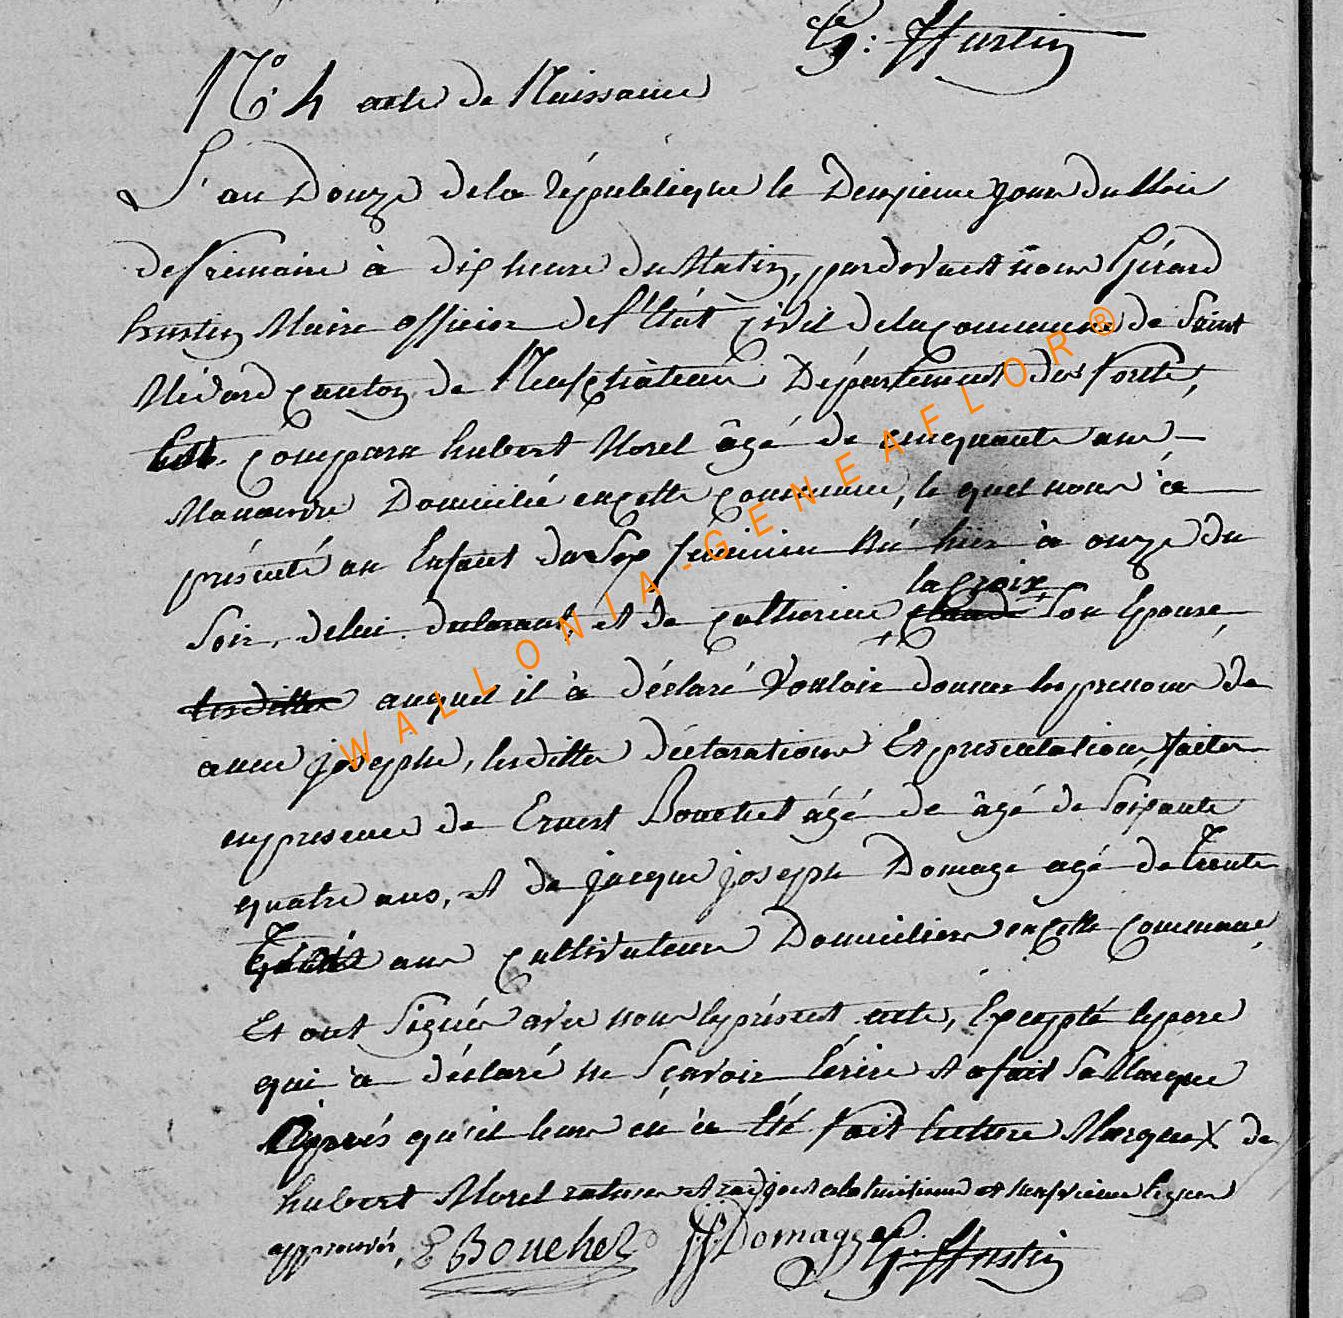 G: Hustin
N° 4 acte de Naissance
L'an Douze de la république le Deuxieme jour du Mois
de frimaire à dix heure du Matin, pardevant nous Gérard
hustin Maire officier de l'Etât Civil de la commune de Saint
Médard canton de Neufchâteau Département des forêts,
comparu hubert Morel âgé de cinquante ans
Manœuvre Domicilié en cette commune, le quel nous à
présenté un Enfant du Sex féminin Né hier à onze du
la Croix
Soir, de lui déclarant, et de catherine Son Epouse,
les dittes auquel il à déclaré Vouloir donner les prenoms de
anne joseph, les dittes déclarations Et présentation faites
en presence de Ernest Bouchet âgé de âgé de Soixante
quatre ans, et de jacque joseph Domage agé de trente
trois ans cultivateurs Domiciliers en cette commune
Et ont Signés avec nous le présent acte, Excepté le pere
qui à déclaré ne Sçavoir Ecrire et a fait Sa Marque
Après qu'il leur en à Eté fait lecture Marque X de
hubert Morel rature et a la huitieme et neufvieme lignes
approuvés. E Bouchez JJ Domage G: Hustin
WALLONIA-GENEAFLOR®